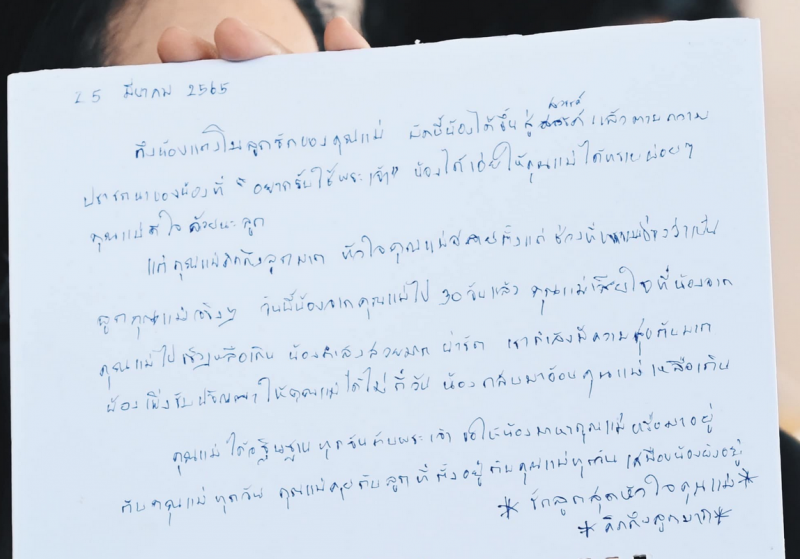 25 มีนาคม 2565
ถึงน้องแตงโมลูกรักของคุณแม่ บัดนี้น้องได้ขึ้นสู่ สวรรค์ แล้วตามความ
ปรารถนาของน้องที่ "อยากรับใช้พระเจ้า" น้องได้เอ่ยให้คุณแม่ได้ทราบบ่อยๆ
คุณแม่ดีใจด้วยนะลูก
แต่คุณแม่คิดถึงลูกมาก หัวใจคุณแม่สลายตั้งแต่ ว่าเป็น
ลูกคุณแม่จริงๆ วันนี้น้องจากคุณแม่ไป 30 วันแล้ว คุณแม่เสียใจที่น้องจาก
คุณแม่ไปเร็วเหลือเกิน น้องกำลังสวยมาก น่ารัก เรากำลังมีความสุขกันมาก
น้องเพิ่งรับปริญญาให้คุณแม่ได้ไม่กี่วัน น้องกลับมาอ้อนคุณแม่เหลือเกิน
คุณแม่ได้อธิษฐานทุกวันกับพระเจ้า ขอให้น้องมาหาคุณแม่หรือมาอยู่
กับคุณแม่ทุกวัน คุณแม่คุยกับลูกที่ยังอยู่กับคุณแม่ทุกวัน เหมือนน้องยังอยู่
* รักลูกสุดหัวใจคุณแม่ *
* คิดถึงลูกมาก *